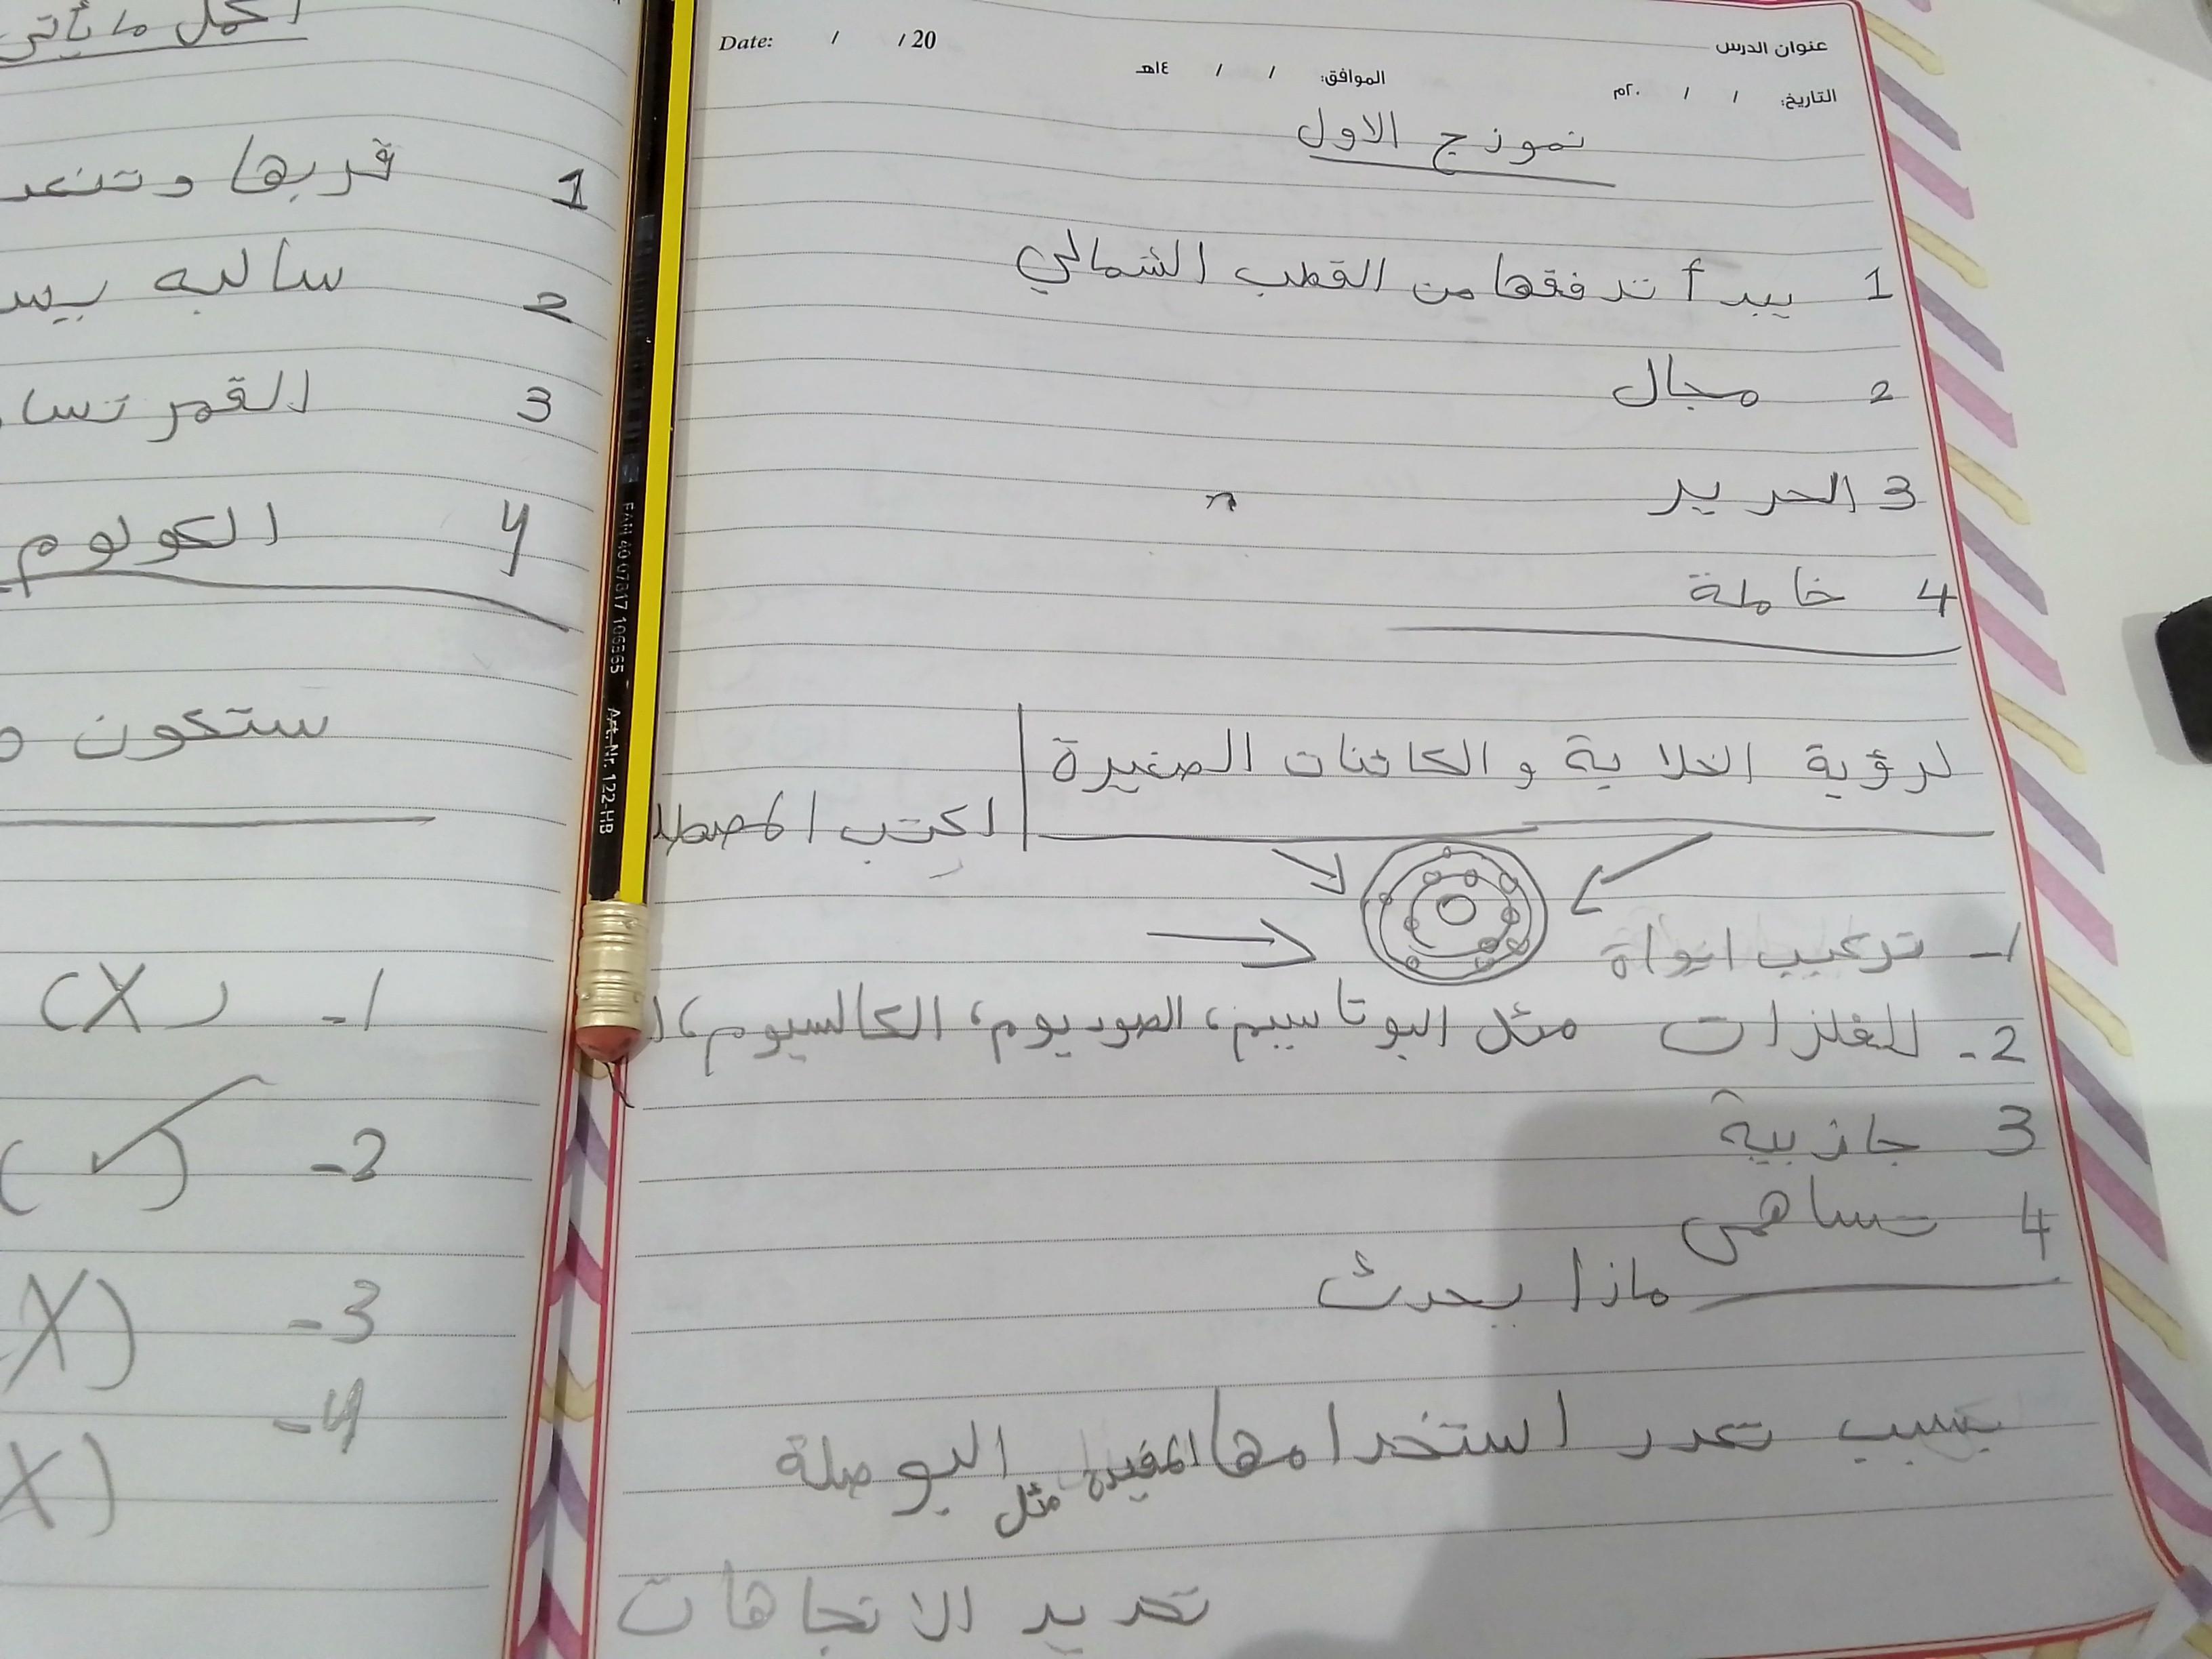 عنوان الدرس
Date: / / 20
التاريخ: / / ٢٠م
الموافق: / / ١٤هـ
نموزج الاول
1 يبدأ تدفقها من القطب الشمالي
2 مجال
3 الحرير
4 خاملة
لرؤية الخلاية و الكائنات الصغيرة
اكتب المصطلح
1- تركيب انواة
2- الفلزات مثل البوتاسيم، الصوديوم، الكالسيوم،
3 جازبية
4 تساهمى
مازا يحدث
بسبب تعدد استخدامها المفيدة مثل البوصلة
تحديد الاتجاهات
اكمل ما يأتى
1 قربها و
2 سالبه
3 القمر
4 الكولوم
ستكون
1- (X)
2- (✓)
3- (X)
4- (X)
EAN 40 07817 106365 Art. Nr. 122-HB